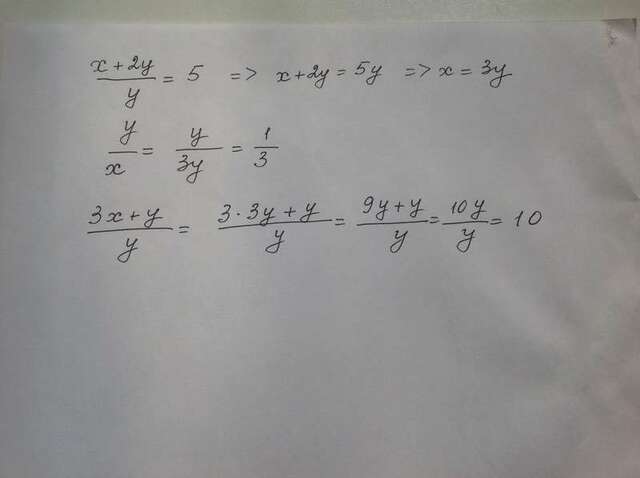 (x+2y)/y = 5 => x+2y = 5y => x = 3y
y/x = y/3y = 1/3
(3x+y)/y = (3·3y+y)/y = (9y+y)/y = 10y/y = 10